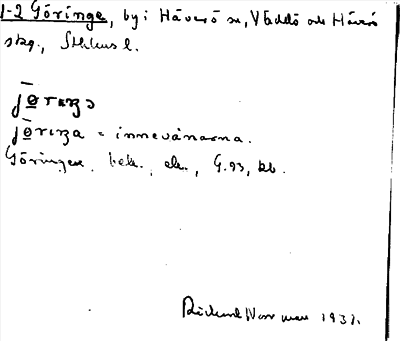 1-2 Göringe, by i Häverö sn, Väddö och Häverö
skg., Sthlms l.
jø̄rıŋə
jø̄rıŋa = innevånarna.
Göringen, bek., ek., G.93, kb.
Rickard Norrman 1931.